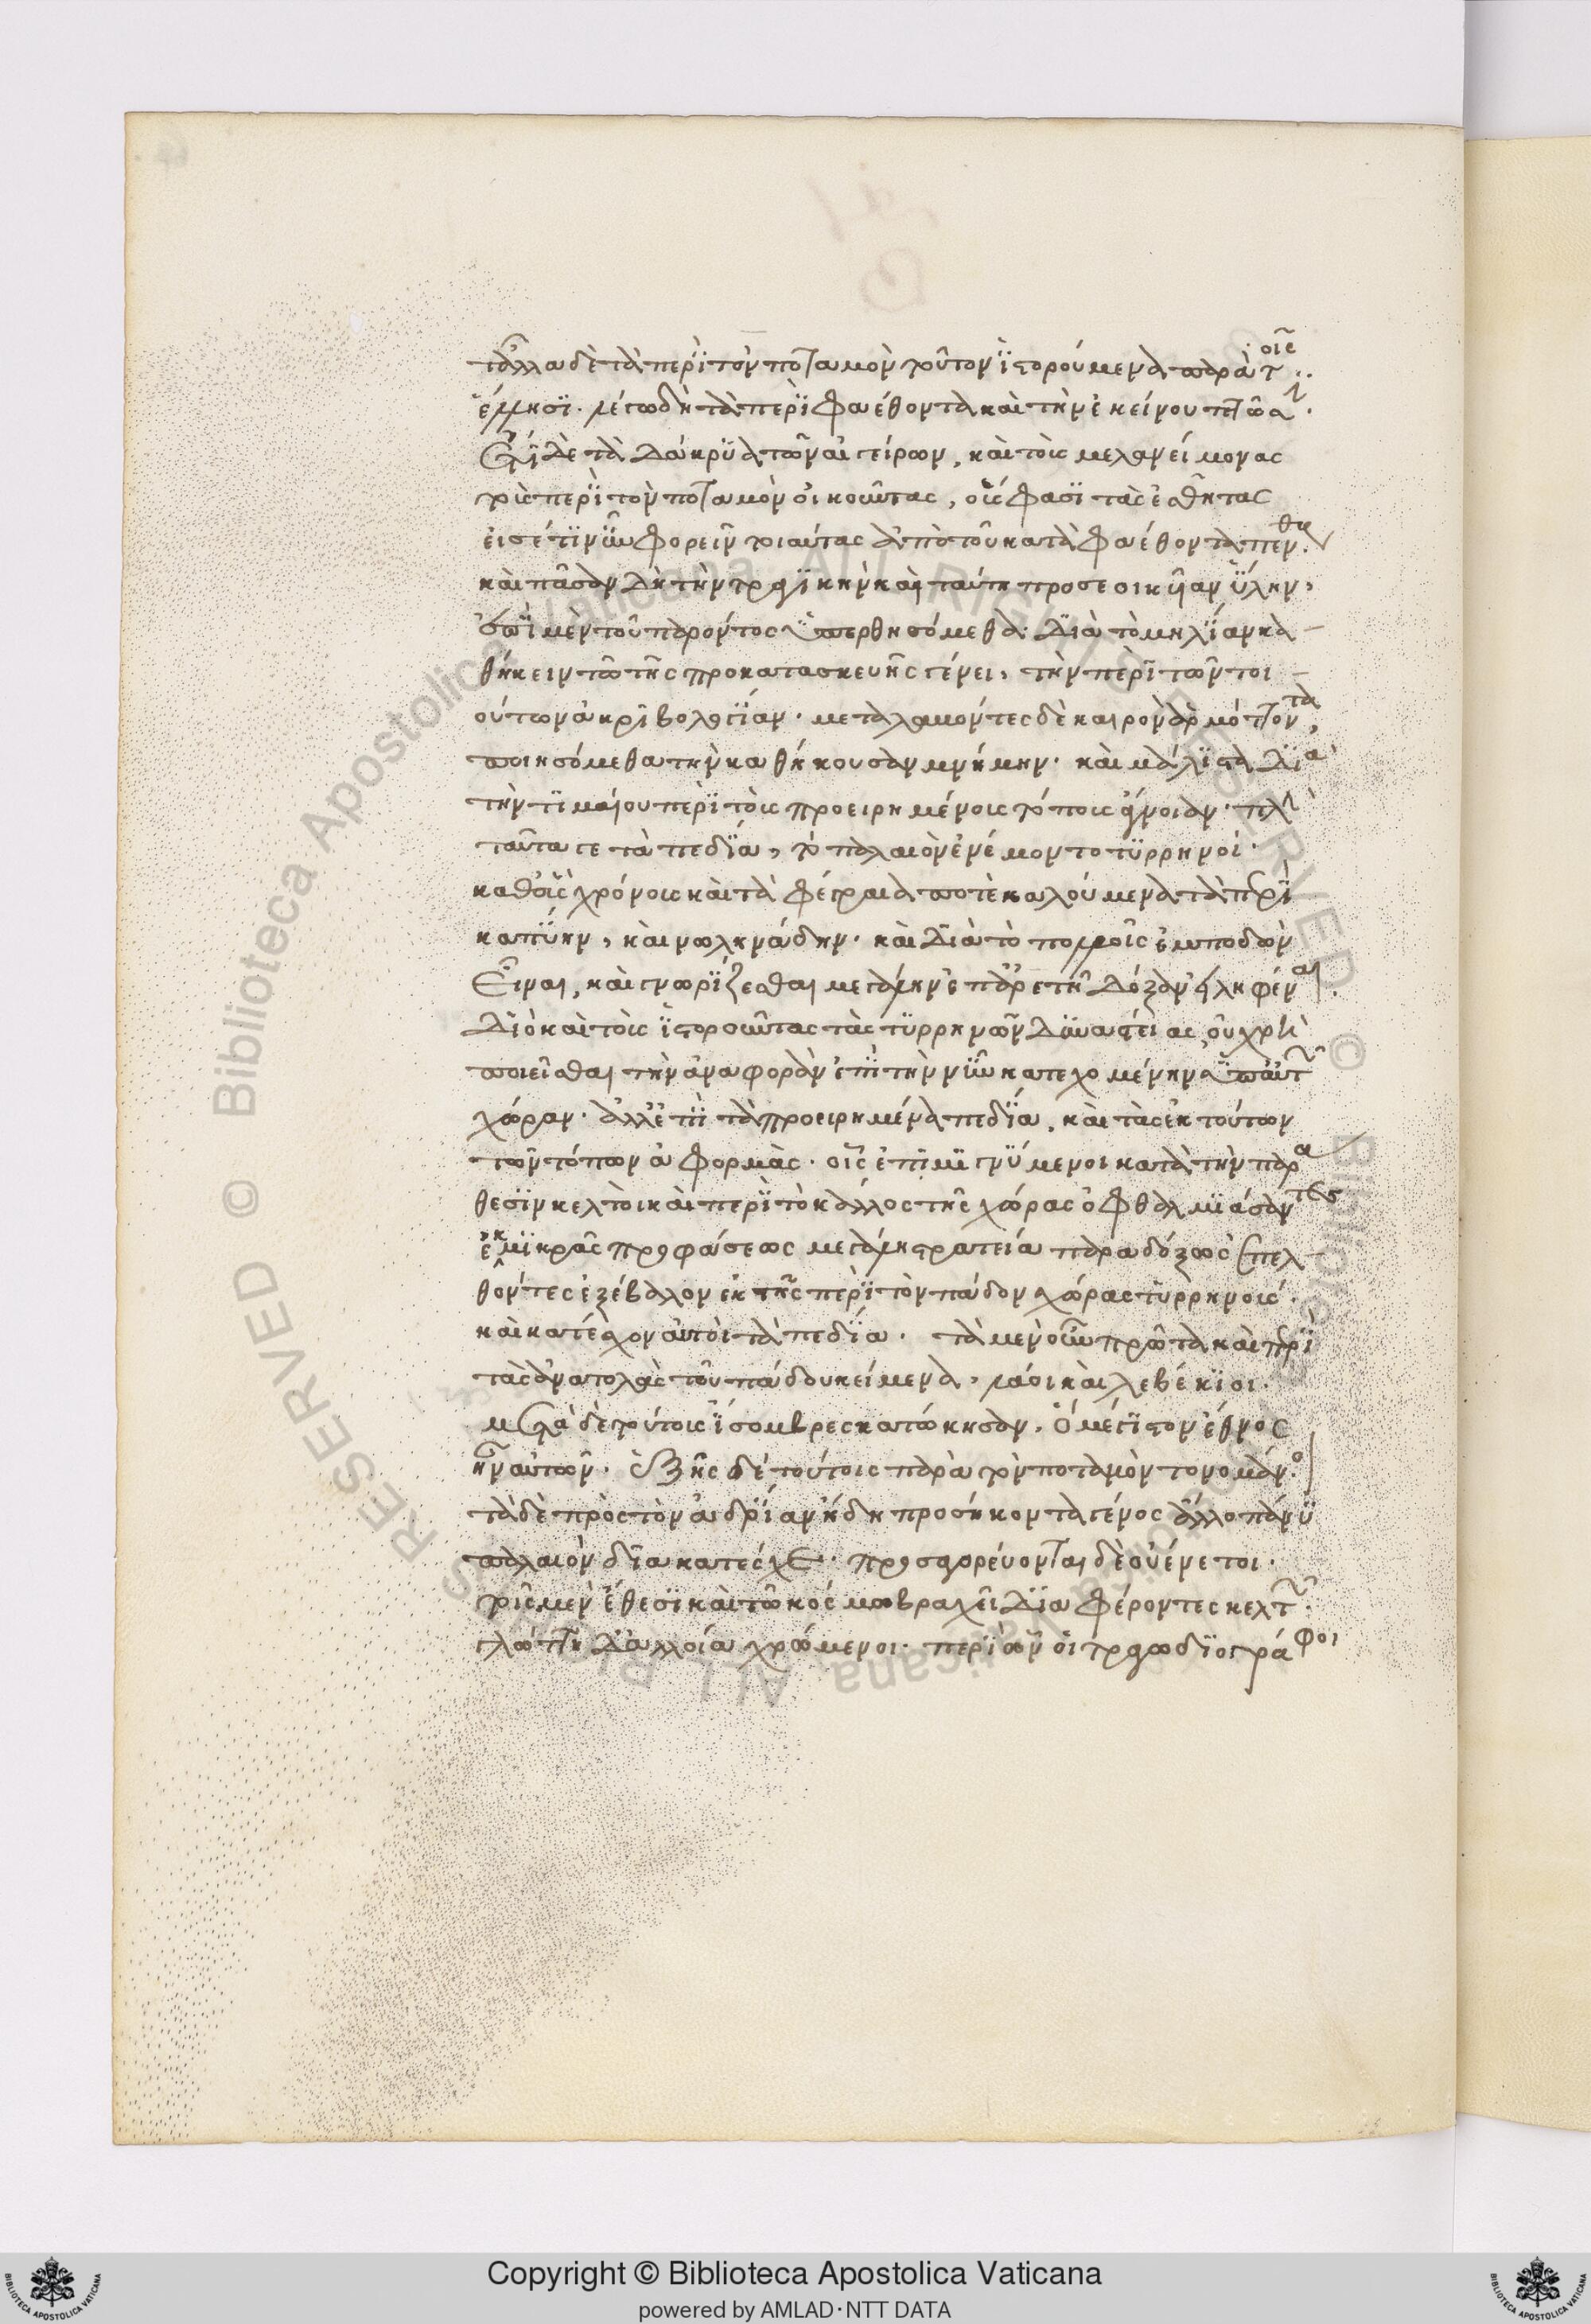 τἆλλα δὲ τὰ περὶ τὸν ποταμὸν τοῦτον ἱστορούμενα παρὰ τοῖς
ἕλλησι. λέγω δὴ τὰ περὶ φαέθοντα καὶ τὴν ἐκείνου πτῶσιν.
ἔτι δὲ τὰ δάκρυα τῶν αἰγείρων, καὶ τοὺς μελανείμονας
τοὺς περὶ τὸν ποταμὸν οἰκοῦντας, οὕς φασι τὰς ἐσθῆτας
εἰσέτι νῦν φορεῖν τοιαύτας ἀπὸ τοῦ κατὰ φαέθοντα πένθους
καὶ πᾶσαν δὴ τὴν τραγικὴν καὶ ταύτη προσεοικυῖαν ὕλην,
ἐπὶ μὲν τοῦ παρόντος ὑπερθησόμεθα. διὰ τὸ μὴ λίαν κα
θήκειν τῶ τῆς προκατασκευῆς γένει, τὴν περὶ τῶν τοι
ούτων ἀκριβολογίαν. μεταλαβόντες δὲ καιρὸν ἁρμόττοντα,
ποιησόμεθα τὴν καθήκουσαν μνήμην. καὶ μάλιστα διὰ
τὴν τιμαίου περὶ τοὺς προειρημένους τόπους ἄγνοιαν. πλὴν
ταῦτα γε τὰ πεδία, τὸ παλαιὸν ἐνέμοντο τυρρηνοί.
καθ' οὓς χρόνους καὶ τὰ φλέγραιά ποτε καλούμενα τὰ περὶ
καπύην, καὶ νωληνάδην. καὶ διὰ τὸ πολλοῖς ἐμποδὼν
εἶναι, καὶ γνωρίζεσθαι μεγάλην ἐπ' ἀρετῆ δόξαν εἰληφέναι.
διὸ καὶ τοὺς ἱστοροῦντας τὰς τυρρηνῶν δυναστείας, οὐ χρὴ
ποιεῖσθαι τὴν ἀναφορὰν ἐπὶ τὴν νῦν κατεχομένην ὑπ' αὐτῶν
χώραν. ἀλλ' ἐπὶ τὰ προειρημένα πεδία, καὶ τὰς ἐκ τούτων
τῶν τόπων ἀφορμάς. οἷς ἐπιμιγνύμενοι κατὰ τὴν παρά
θεσιν κελτοὶ καὶ περὶ τὸ κάλλος τῆς χώρας ὀφθαλμιάσαντες
ἐκ μικρᾶς προφάσεως μεγάλη στρατεία παραδόξως ἐπελ
θόντες ἐξέβαλον ἐκ τῆς περὶ τὸν πάδον χώρας τυρρηνούς.
καὶ κατέσχον αὐτοὶ τὰ πεδία. τὰ μὲν οὖν πρῶτα καὶ περὶ
τὰς ἀνατολὰς τοῦ πάδου κείμενα, λάοι καὶ λεβέκιοι.
μετὰ δὲ τούτους ἴσομβρες κατώκησαν. ὃ μέγιστον ἔθνος
ἦν αὐτῶν. ἑξῆς δὲ τούτοις παρὰ τὸν ποταμὸν γονομάνοι
τὰ δὲ πρὸς τὸν ἀδρίαν ἤδη προσήκοντα γένος ἄλλο πάνυ
παλαιὸν διακατέσχε. προσαγορεύονται δὲ οὐένετοι.
τοῖς μὲν ἔθεσι καὶ τῶ κόσμω βραχεῖ διαφέροντες κελτῶν.
γλώττη δ' ἀλλοία χρώμενοι. περὶ ὧν οἱ τραγωδιογράφοι